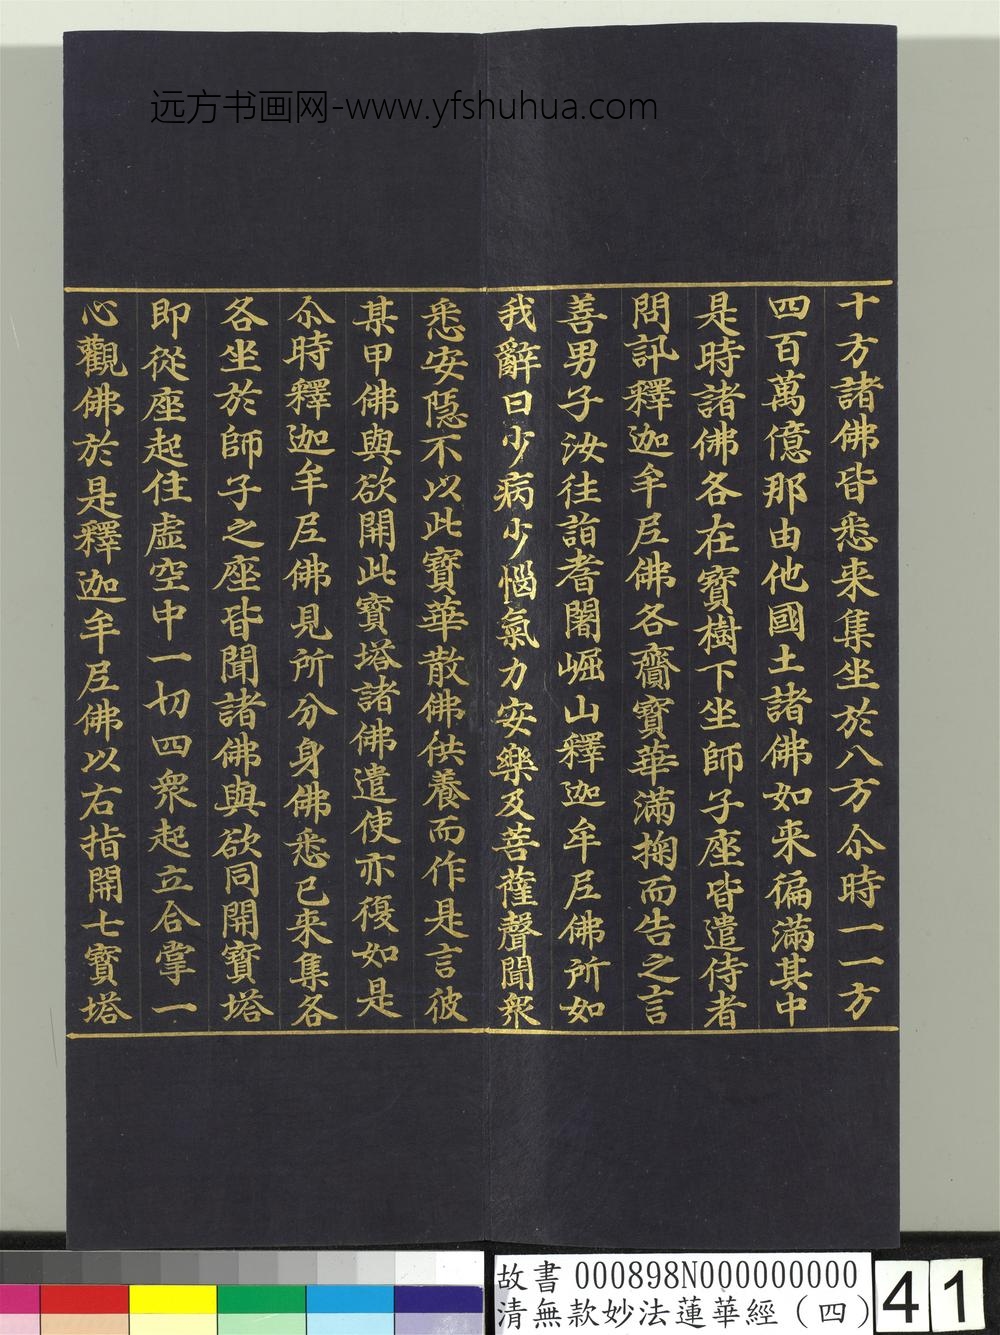 远方书画网-www.yfshuhua.com
十方諸佛皆悉来集坐於八方尒時一一方
四百萬億那由他國土諸佛如来徧滿其中
是時諸佛各在寶樹下坐師子座皆遣侍者
問訊釋迦牟尼佛各齎寶華滿掬而告之言
善男子汝往詣耆闍崛山釋迦牟尼佛所如
我辭曰少病少惱氣力安樂及菩薩聲聞衆
悉安隱不以此寶華散佛供養而作是言彼
某甲佛與欲開此寶塔諸佛遣使亦復如是
尒時釋迦牟尼佛見所分身佛悉已来集各
各坐於師子之座皆聞諸佛與欲同開寶塔
即從座起住虛空中一切四衆起立合掌一
心觀佛於是釋迦牟尼佛以右指開七寶塔
故書 000898N000000000
清無款妙法蓮華經（四）
41